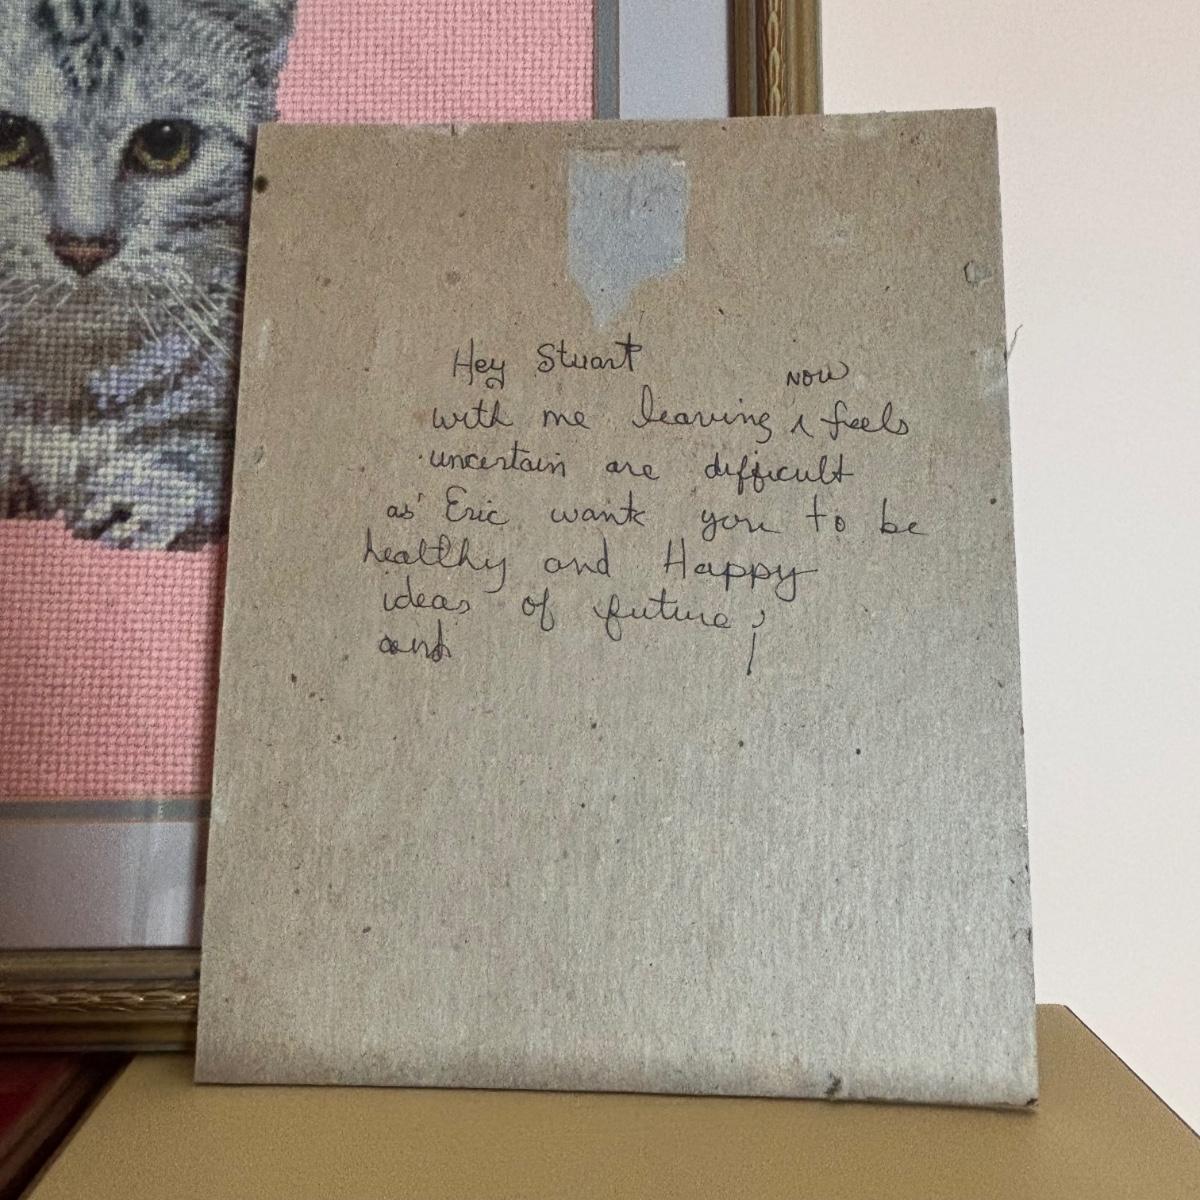 Hey Stuart
now
with me leaving ʌ feels
uncertain are difficult
as Eric want you to be
healthy and Happy
ideas of future;
and